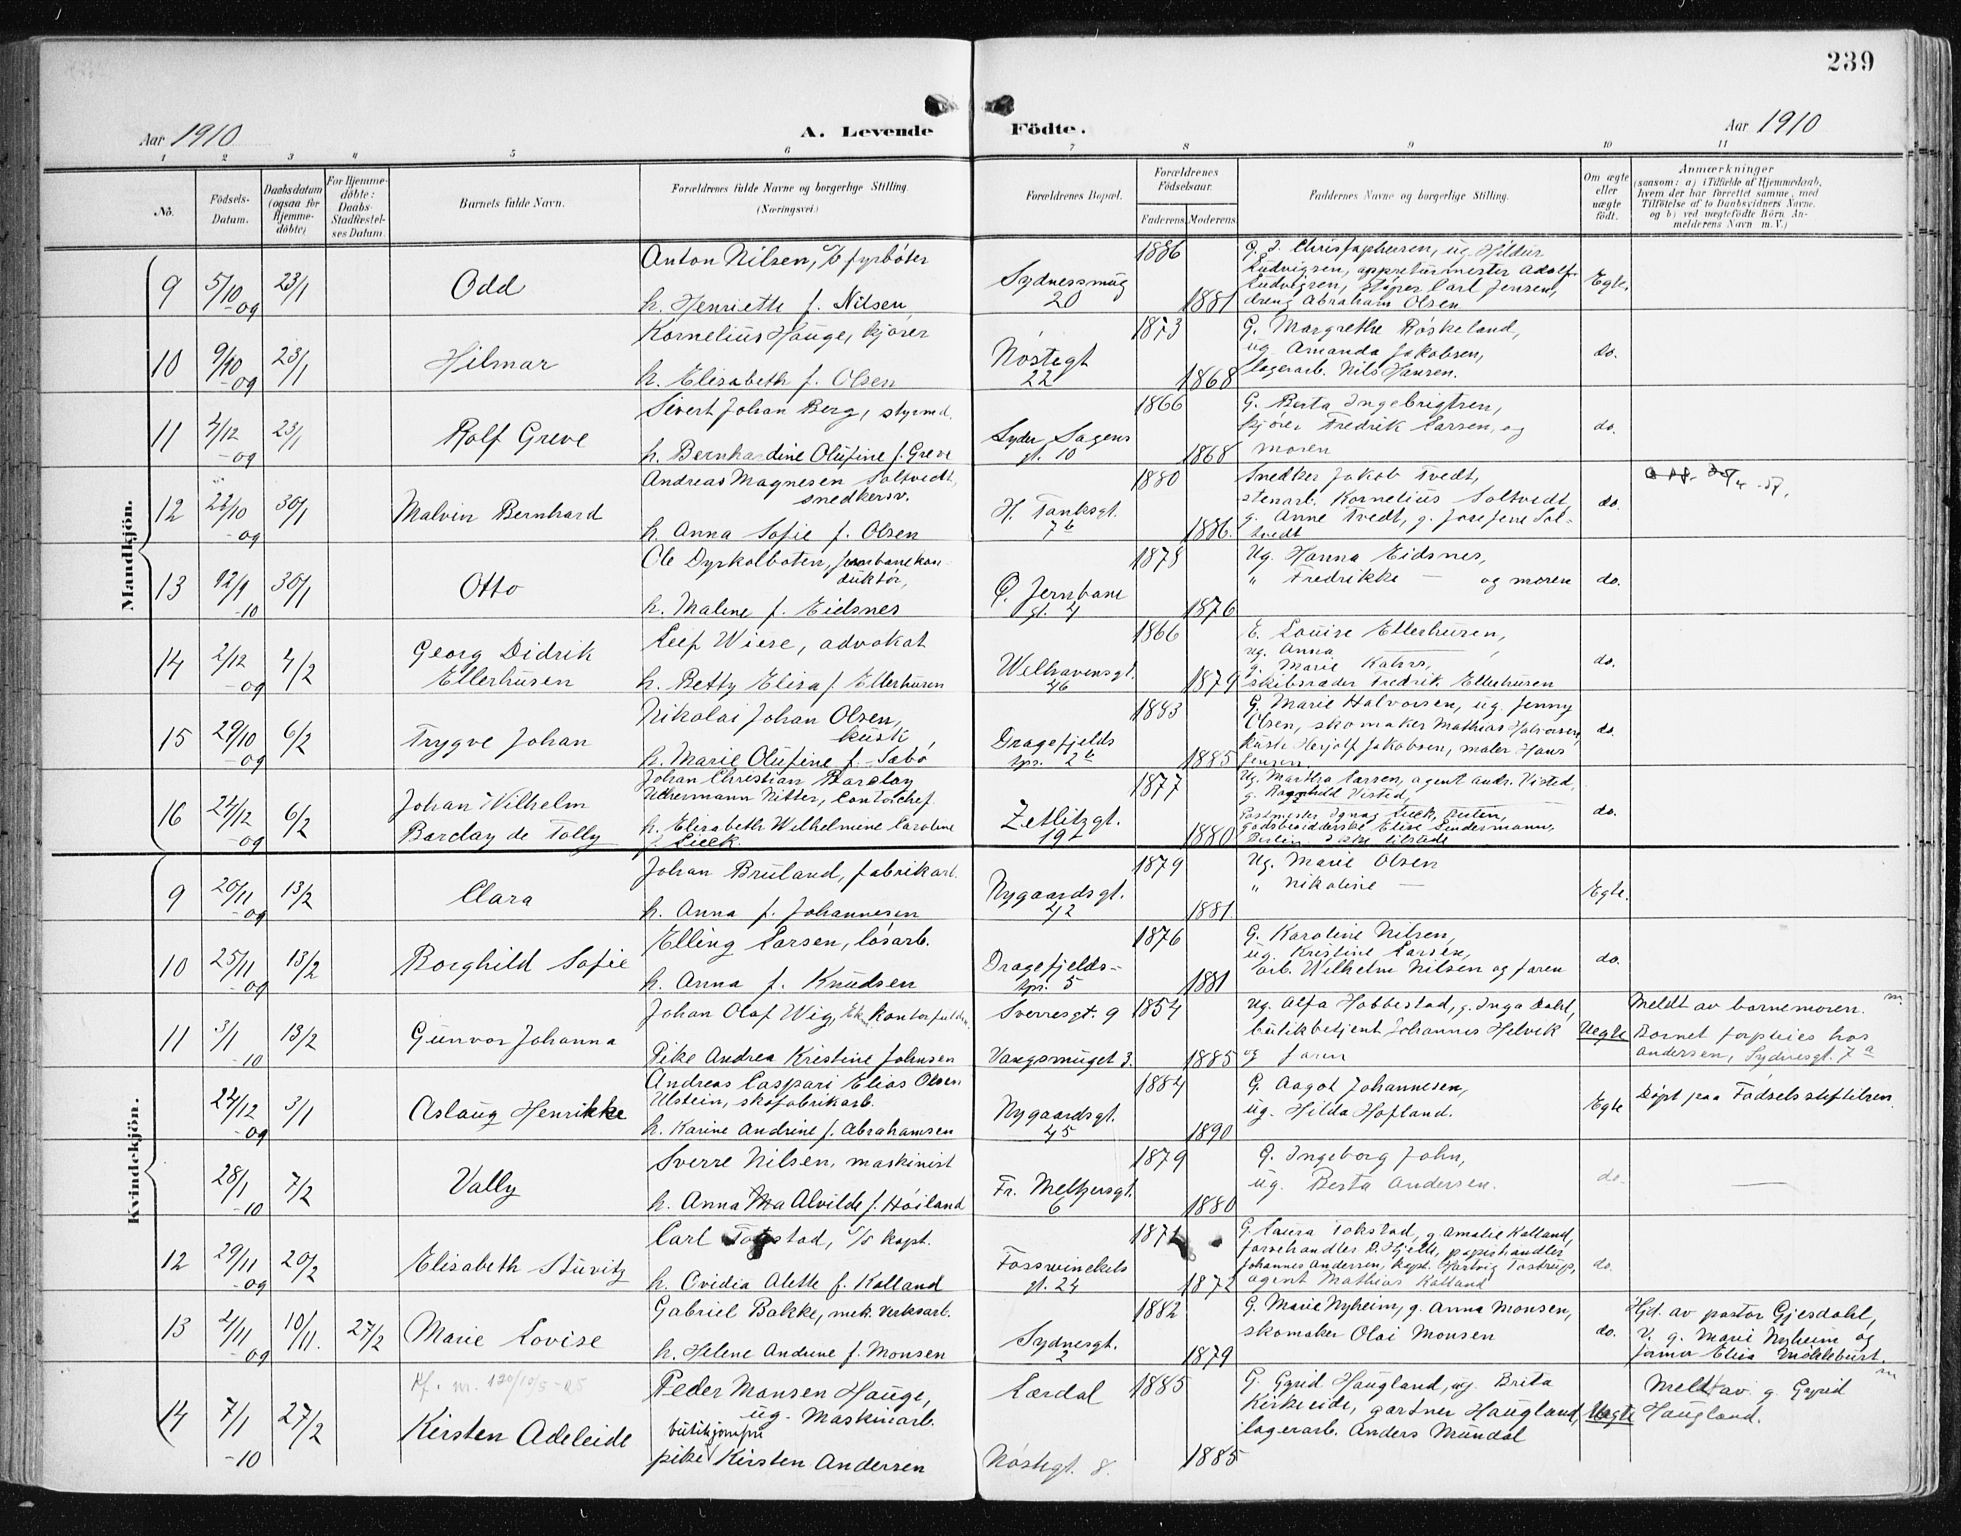 239
Aar 1910
A. Levende Födte.
Aar 1910
1 2 3 4 5 6 7 8 9 10 11
No.
Födsels-Datum.
Daabsdatum (ogsaa for Hjemme-döbte)
For Hjemme-döbte: Daabs-Stadfæstel-ses Datum.
Barnets fulde Navn.
Forældrenes fulde Navne og borgerlige Stilling.
(Næringsvei.)
Forældrenes Bopæl.
Forældrenes Födselsaar.
Faderens. Moderens.
Faddernes Navne og borgerlige Stilling.
Om ægte eller uægte födt.
Anmærkninger
(saasom: a) i Tilfælde af Hjemmedaab,
hvem der har forrettet samme, med
Tilföielse af to Daabsvidners Navne.
og b) ved uægtefödte Börn An-
melderens Navn m. V.)
Mandkjön.
9 5/10 -09 23/1 Odd
Anton Nilsen, fyrbøter
h. Henriette f. Nilsen
Sydnessmug 20
1886 1881
Christophersen, ug. Hildur
Ludvigsen, appreturmester Adolf
Ludvigsen, Støper Carl Jensen,
dreng Abraham Olsen
Egte.
10 9/10 -09 23/1 Hilmar
Kornelius Hauge, kjører
h. Elisabeth f. Olsen
Nøstegt 22
1873 1868
G. Margrethe Røskeland,
ug. Amanda Jakobsen,
lagerarb. Nils Hansen.
do.
11 4/12 -09 23/1 Rolf Greve
Sivert Johan Berg, styrmd.
h. Bernhardine Olufine f. Greve
Lyder Sagens gt. 10
1866 1868
G. Berta Ingebrigtsen,
kjører Fredrik Larsen, og
moren
do.
12 22/10 -09 30/1 Malvin Bernhard
Andreas Magnesen Saltvedt,
snedkersv.
h. Anna Sofie f. Olsen
H. Tanksgt. 7b
1880 1886.
Snedker Jakob Tvedt,
stenarb. Kornelius Saltvedt,
g. Anne Tvedt, g. Josefene Sal-
tvedt
do.
13 12/1 -10 30/1 Otto
Ole Dyrkolboten, jernbanekon-
duktør,
h. Malene f. Eidsnes
Ø. Jernbane gt. 4
1878 1876
Ug. Hanna Eidsnes,
" Fredrikke — og moren
do.
14 2/12 -09 4/2 Georg Didrik
Ellerhusen
Leif Wiese, advokat
h. Betty Elisa f. Ellerhusen
Welhavensgt. 46
1866 1879
E. Louise Ellerhusen,
ug. Anna —,
g. Marie Kahrs,
skibsreder Fredrik Ellerhusen
do.
15 29/10 -09 6/2 Trygve Johan
Nikolai Johan Olsen,
kusk
h. Marie Olufine f. Sæbø
Dragefjelds tpr. 2b
1883 1885
G. Marie Halvorsen, ug. Jenny
Olsen, skomaker Mathias Halvorsen,
kusk Herjolf Jakobsen, maler Hans
Jensen.
do.
16 24/12 -09 6/2 Johan Wilhelm
Barclay de Tolly
Johan Christian Barclay
Uckermann Nitter, Contorchef
h. Elisabeth Wilhelmine Caroline
f. Lieck.
Zetlitzgt. 19
1877 1880
Ug. Martha Larsen, agent Andr. Visted,
g. Ragnhild Visted,
Postmester Ignaz Lieck,
Godsbesidderske Elise Lindermann,
Berlin
do.
Kvindekjön.
9 20/11 -09 13/2 Clara
Johan Bruland, fabrikarb.
h. Anna f. Johannesen
Nygaardsgt. 42
1879 1881
Ug. Marie Olsen
" Nikoline —
Egte.
10 25/11 -09 13/2 Borghild Sofie
Elling Larsen, løsarb.
h. Anna f. Knudsen
Dragefjelds- tpr. 5
1876 1881
G. Karoline Nilsen,
ug. Kristine Larsen,
arb. Wilhelm Nilsen og faren
do.
11 3/1 -10 13/2 Gunvor Johanna
Johan Olaf Wig, Ekm. kontorfuldm.
Pike Andrea Kristine Johnsen
Sverresgt. 9
Vangsmuget 3.
1854 1885
Ug. Alfa Hobbestad, g. Inga Dahl,
butikbetjent Johannes Helvik
og faren
Uegte
Meldt av barnemoren.
Barnet forpleies hos
Andersen, Sydnesgt. 7a
24/12 -09 3/1 Aslaug Henrikke
Andreas Caspari Elias Olsen
Ulstein, skofabrikarb.
h. Karine Andrine f. Abrahamsen
Nygaardsgt. 45
1884 1890
G. Aagot Johannesen,
ug. Hilda Hofland.
Egte
Døpt paa Fødselsstiftelsen.
28/1 -10 7/2 Vally
Sverre Nilsen, maskinist
h. Anna Alvilde f. Høiland
Fr. Meltzersgt. 6
1879 1880
G. Ingeborg John,
ug. Berta Andersen.
do.
12 29/11 -09 20/2 Elisabeth Stuvitz
Carl Tokstad, kapt.
h. Ovidia Alette f. Kalland
Fosswinckels gt. 24
1871 1872
G. Laura Tokstad, g. Amalie Kalland,
farvehandler D. Hjelle, papirhandler
Johannes Andersen, kapt. Hartvig Tostrup,
agent Mathias Kalland
do.
13 4/11 -09 10/11. 27/2 Marie Lovise
Gabriel Bakke, mek. verksarb.
h. Helene Andrine f. Monsen
Sydnesgt. 2
1882 1879
G. Marie Nyheim, g. Anna Monsen,
skomaker Olai Monsen
do.
Hjd. av pastor Gjesdahl,
V. g. Marie Nyheim og
jomfr Elisa Mokleburst.
14 7/1 -10 27/2 Kirsten Adeleide
Peder Monsen Hauge,
ug. Maskinarb.
butikjomfru
pike Kirsten Andersen
Lærdal
Nøstegt. 8.
1885 1885
G. Gyrid Haugland, ug. Brita
Kirkeide, gartner Haugland,
lagerarb. Anders Mundal
Uegte
Meldt av g. Gyrid
Haugland.